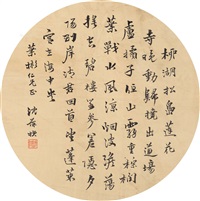 柳湖松島蓮花
寺晚動歸橈出道場
盧橘子低山雨重棕櫚
葉戰水風涼烟波澹蕩
搖空碧樓殿參差倚夕
陽到岸請君回首望蓬萊
宮在海中央
仁兄正